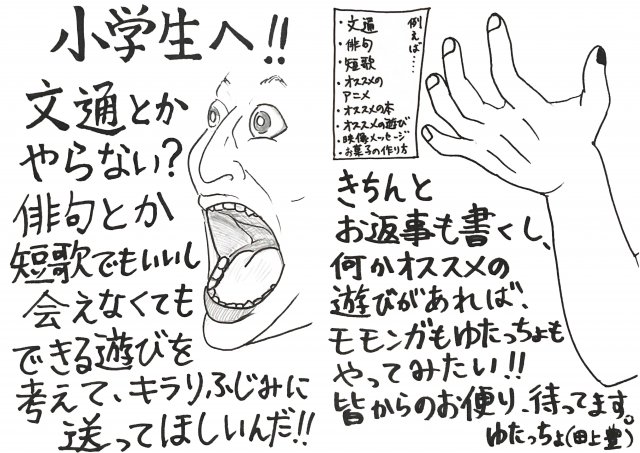 小学生へ!!
文通とか
やらない?
俳句とか
短歌でもいいし
会えなくても
できる遊びを
考えて、キラリふじみに
送ってほしいんだ!!
例えば…
・文通
・俳句
・短歌
・オススメの
アニメ
・オススメの本
・オススメの遊び
・映像メッセージ
・お菓子の作り方
きちんと
お返事も書くし、
何かオススメの
遊びがあれば、
モモンガもゆたっちょも
やってみたい!!
皆からのお便り、待ってます。
ゆたっちょ(田上豊)